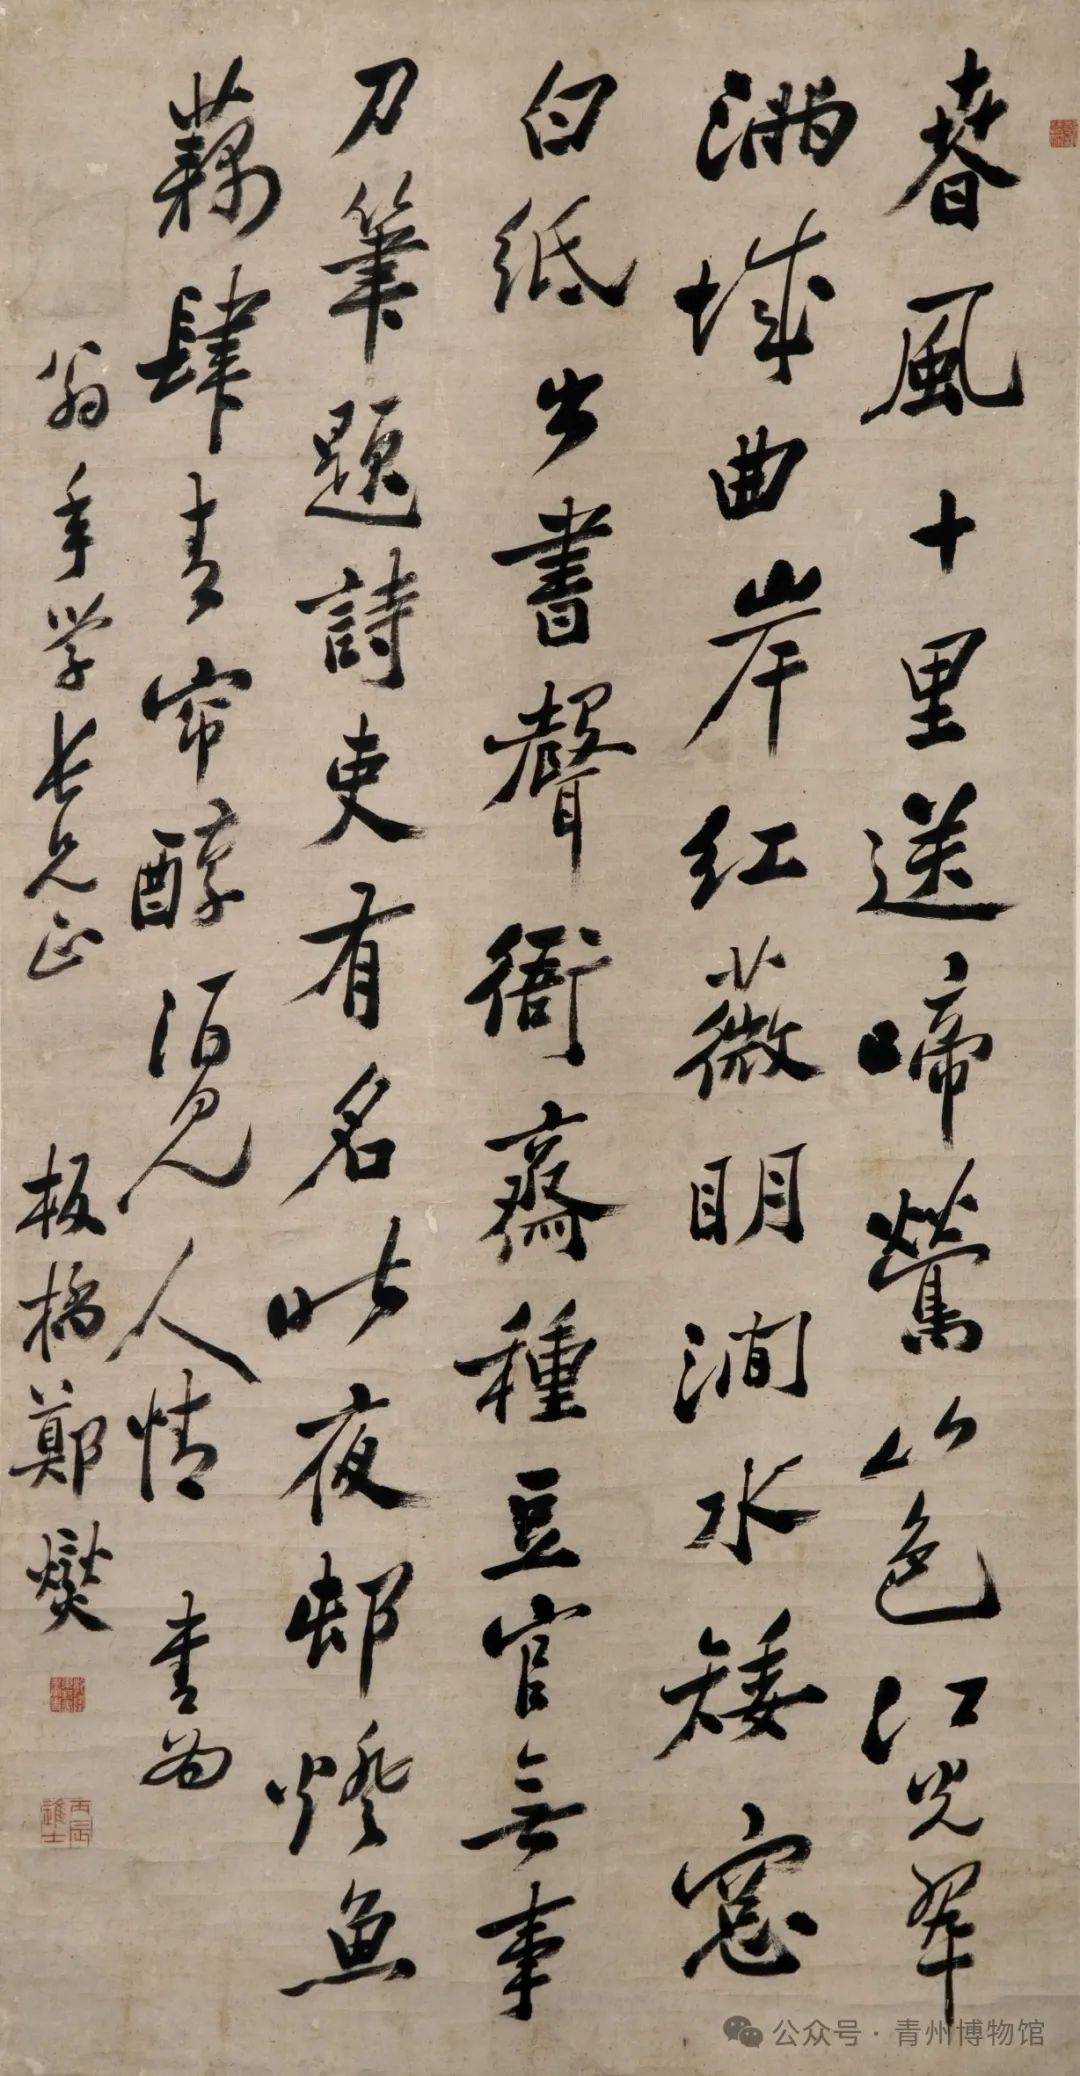 春風十里送啼鶯山色江光翠
滿城曲岸紅薇明澗水矮窓
白紙出書聲衙齋種豆官無事
刀筆題詩吏有名昨夜邨燈魚
藕肆青帘醇酒見人情 書為
翁年學長兄正 板橋鄭燮
丙辰進士
公众号·青州博物馆